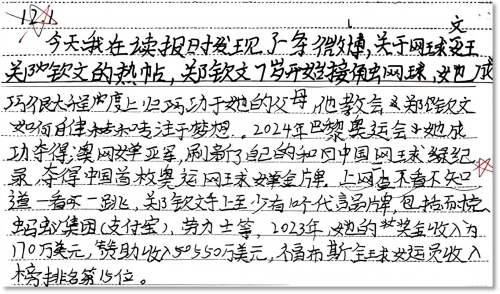 12.1
文
今天我在读报时发现了一条微博,关于网球王
关郑钦文的热帖,郑钦文7岁开始接触网球,她成
巧很大程度上归巧功于她的父母,他教会郑钦文
如何自律和专注于梦想。2024年巴黎奥运会她成
功夺得澳网女单亚军,刷新了自己的和中国网球纪
录,夺得中国首枚奥运网球女单金牌。上网查不看不知
道一看吓一跳,郑钦文手上至少有10个代言品牌,包括
蚂蚁集团(支付宝)、劳力士等,2023年,她的奖金收入为
170万美元,赞助收入550万美元,福布斯全球女运员收入
榜排名第15位。